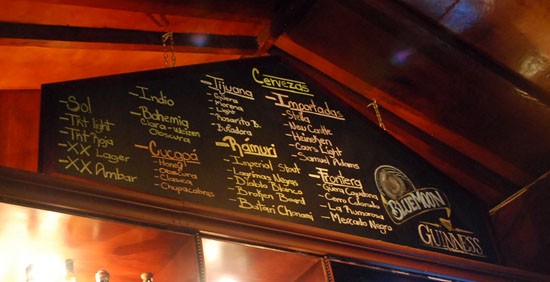 Cervezas
-Sol
-Tkt light
-Tkt Roja
-XX Lager
-XX Ambar
-Indio
-Bohemia
Clara-Weizen
Obscura
-Cucapá
-Honey
-Obscura
-Clasica
-Chupacabras
-Tijuana
-Guera
-Morena
-Light
-Rosarito B.
-Bufadora
-Rámuri
-Imperial Stout
-Lagrimas Negras
-Diablo Blanco
-Broken Board
-Batari Chonami
-Importadas
-Stella
-New Castle
-Heineken
-Coors Light
-Samuel Adams
-Frontera
-Guera Coqueta
-Cerro Colorado
-La Rumorosa
-Mercado Negro
BLUE MOON
GUINNESS